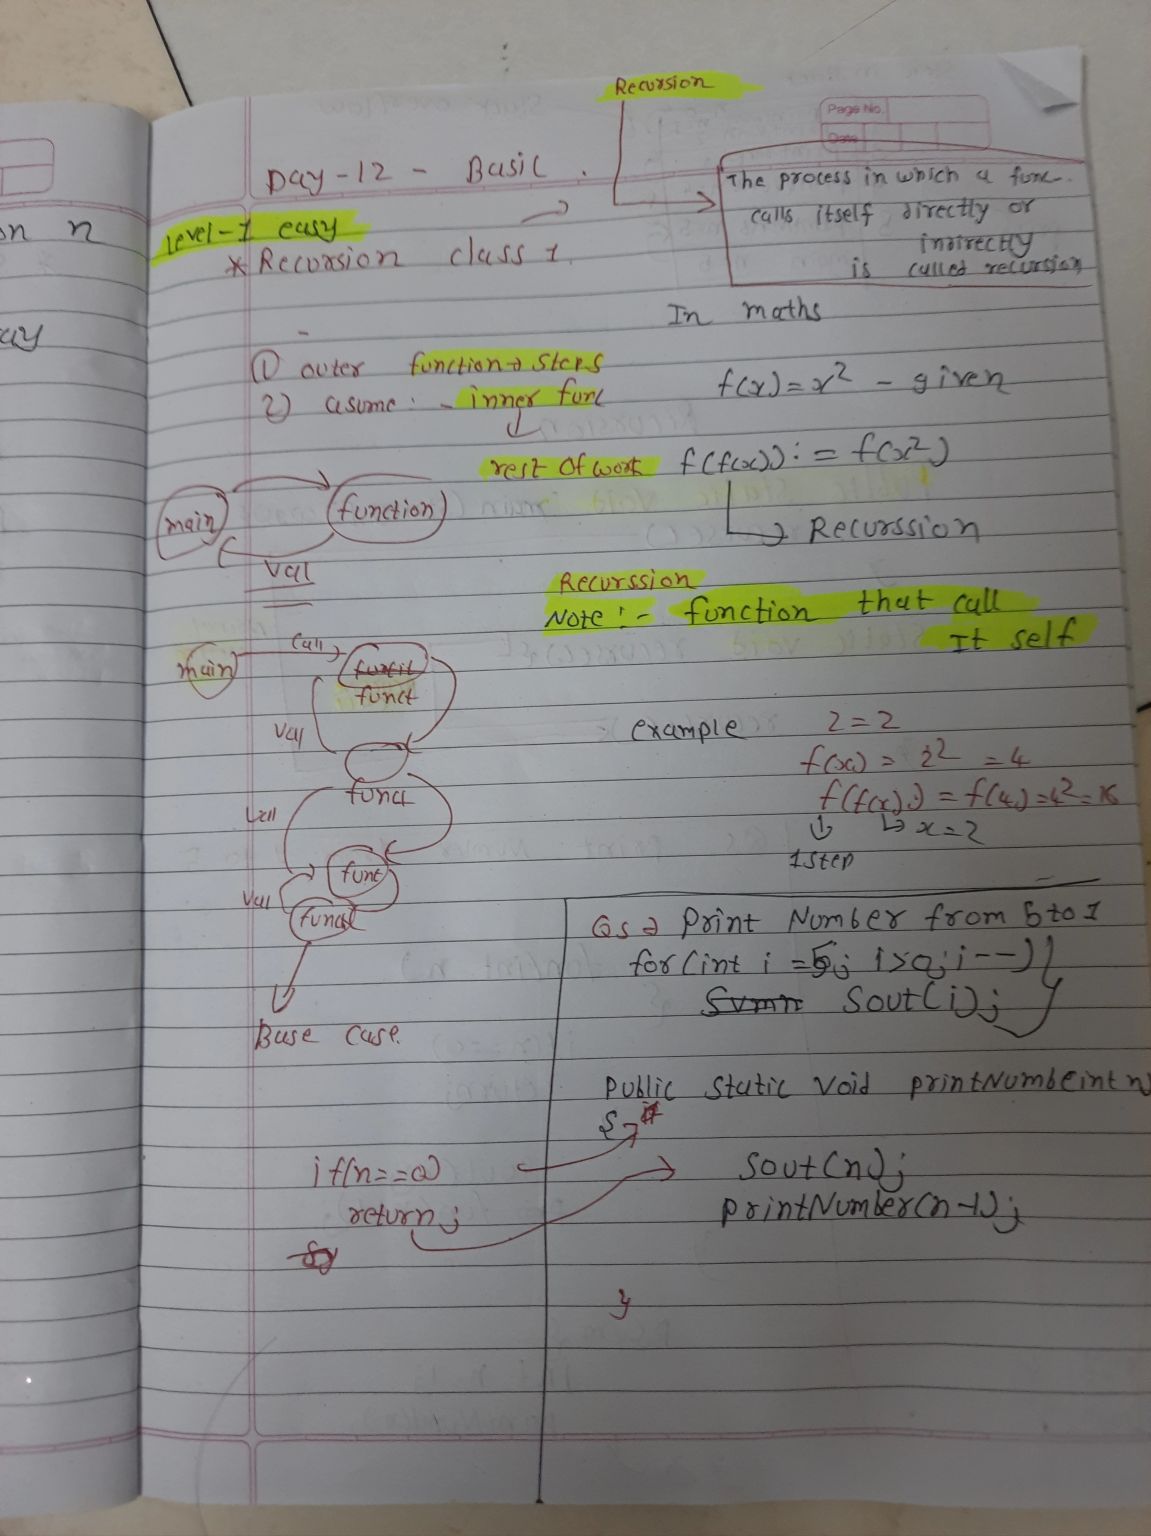 Recursion
Page No.
Date
Day-12 - Basic.
The process in which a func..
calls itself directly or
indirectly
is called recursion
on n
level-1 easy
* Recursion class 1.
ay
In maths
① outer function → steps
2) asume: - inner func
f(x) = x² - given
rest of work
f(f(x)) := f(x²)
Recurssion
main
function
val
Recurssion
Note :- function that call
It self
main
call
funct
val
funct
call
funct
val
funct
Base case.
example
2 = 2
f(x) = 2² = 4
f(f(x)) = f(4) = 4² = 16
x = 2
1 step
Qs → Print Number from 5 to 1
for(int i = 5; i>0; i--){
Sout(i); }
Public Static Void printNumbe(int n)
{
if(n==0)
return;
Sout(n);
printNumber(n-1);
}